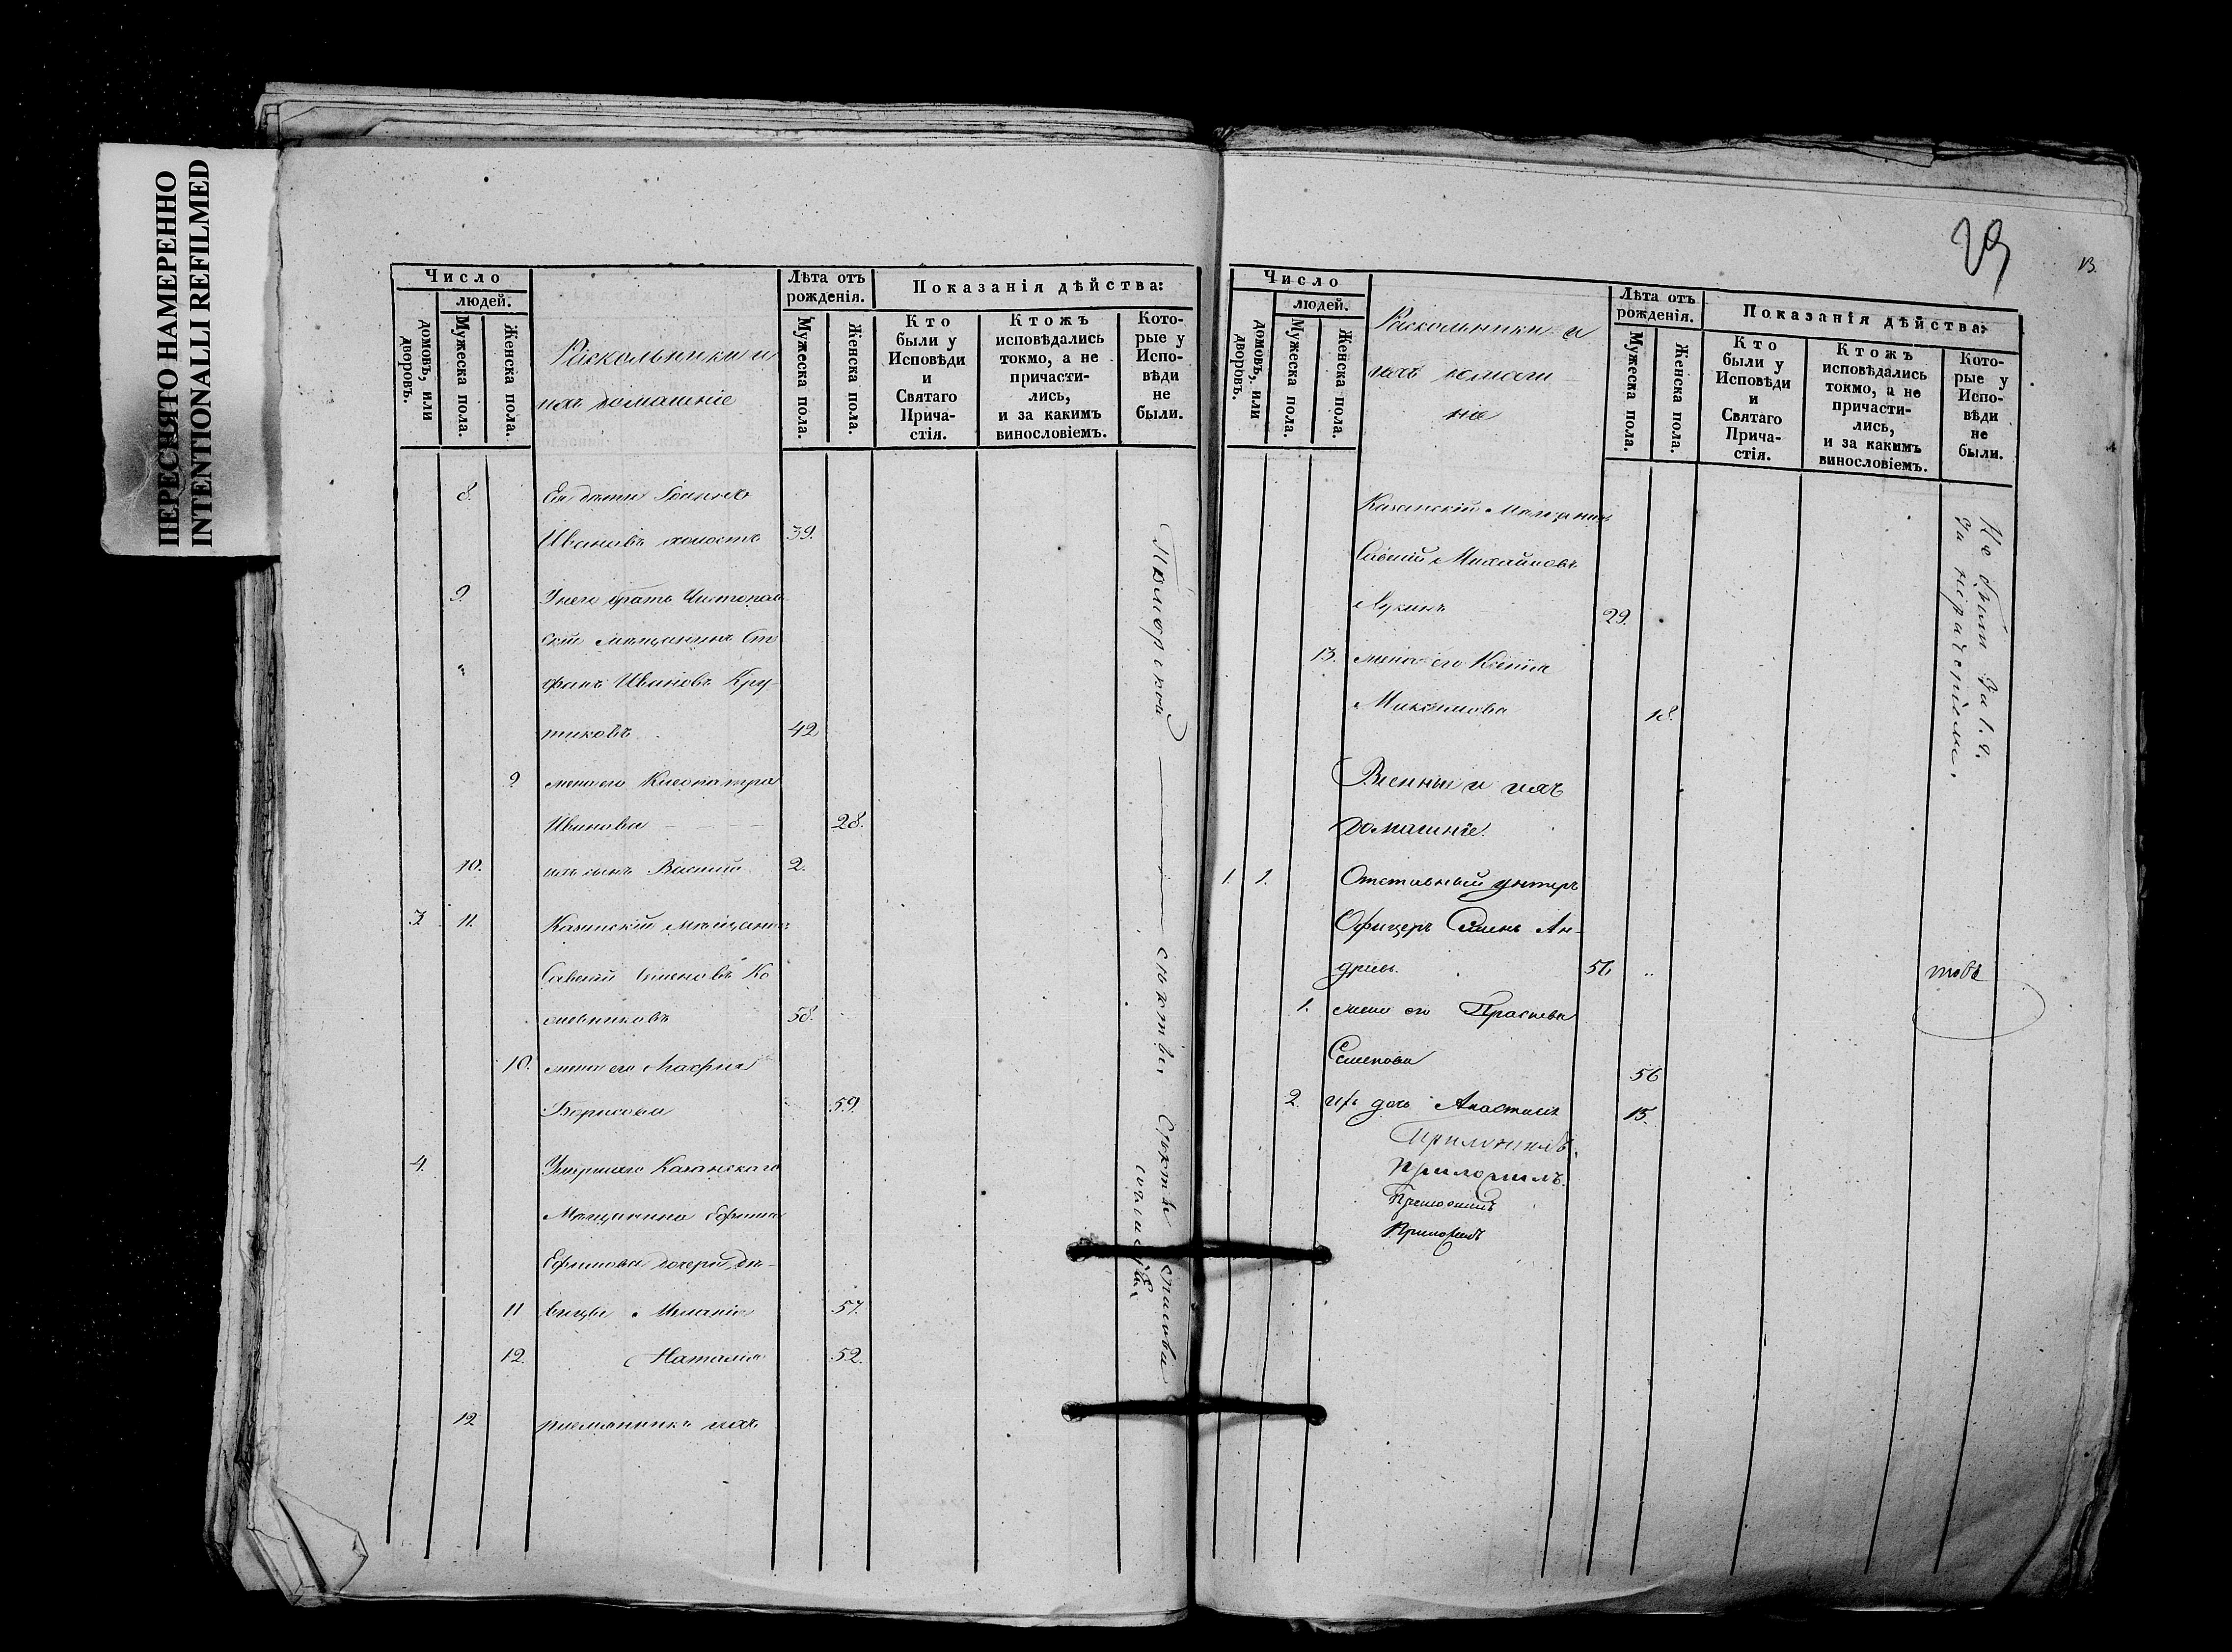 ПЕРЕСНЯТО НАМЕРЕННО
INTENTIONALLI REFILMED
Число
людей.
домовъ, или дворовъ.
Мужеска пола.
Женска пола.
Раскольники и
ихъ домашніе
Лѣта отъ рожденія.
Мужеска пола.
Женска пола.
Показанія дѣйства:
Кто были у Исповѣди и Святаго Причастія.
Ктожъ исповѣдались токмо, а не причастились, и за какимъ винословіемъ.
Которые у Исповѣди не были.
8.
Ивановъ холостъ 39.
9. У него братъ Чистополь
скій мѣщанинъ Сте
" фанъ Ивановъ Кру-
тиковъ 42
9 жена его Клеопатра
Иванова 28.
10. ихъ сынъ Василій 2.
3 11. Казанскій Мѣщанинъ
Савелій
58.
10. жена его Марфа
Борисова 59.
4. Умершаго Казанскаго
Мѣщанина Ефима
Ефимова дочери, дѣ-
11 вицы Меланія 57.
12. Наталія 52.
12 племянникъ ихъ
Поморской секты
29
13.
Число
людей.
домовъ, или дворовъ.
Мужеска пола.
Женска пола.
Раскольники и
ихъ домаш-
ніе
Лѣта отъ рожденія.
Мужеска пола.
Женска пола.
Показанія дѣйства:
Кто были у Исповѣди и Святаго Причастія.
Ктожъ исповѣдались токмо, а не причастились, и за какимъ винословіемъ.
Которые у Исповѣди не были.
Казанскій Мѣщанинъ
Савелій Михайловъ
Лукинъ 29.
13. жена его Ксенія
18.
Не были
за нераденіемъ.
Военные и ихъ
домашніе.
1. 1. Отставный унтеръ
Офицеръ Семенъ Ан-
дреевъ. 56 "
1. жена его Праскева
Семенова 56
2. ихъ дочь Анастасія 15.
Приложилъ.
Приложилъ.
Приложилъ
Приложилъ